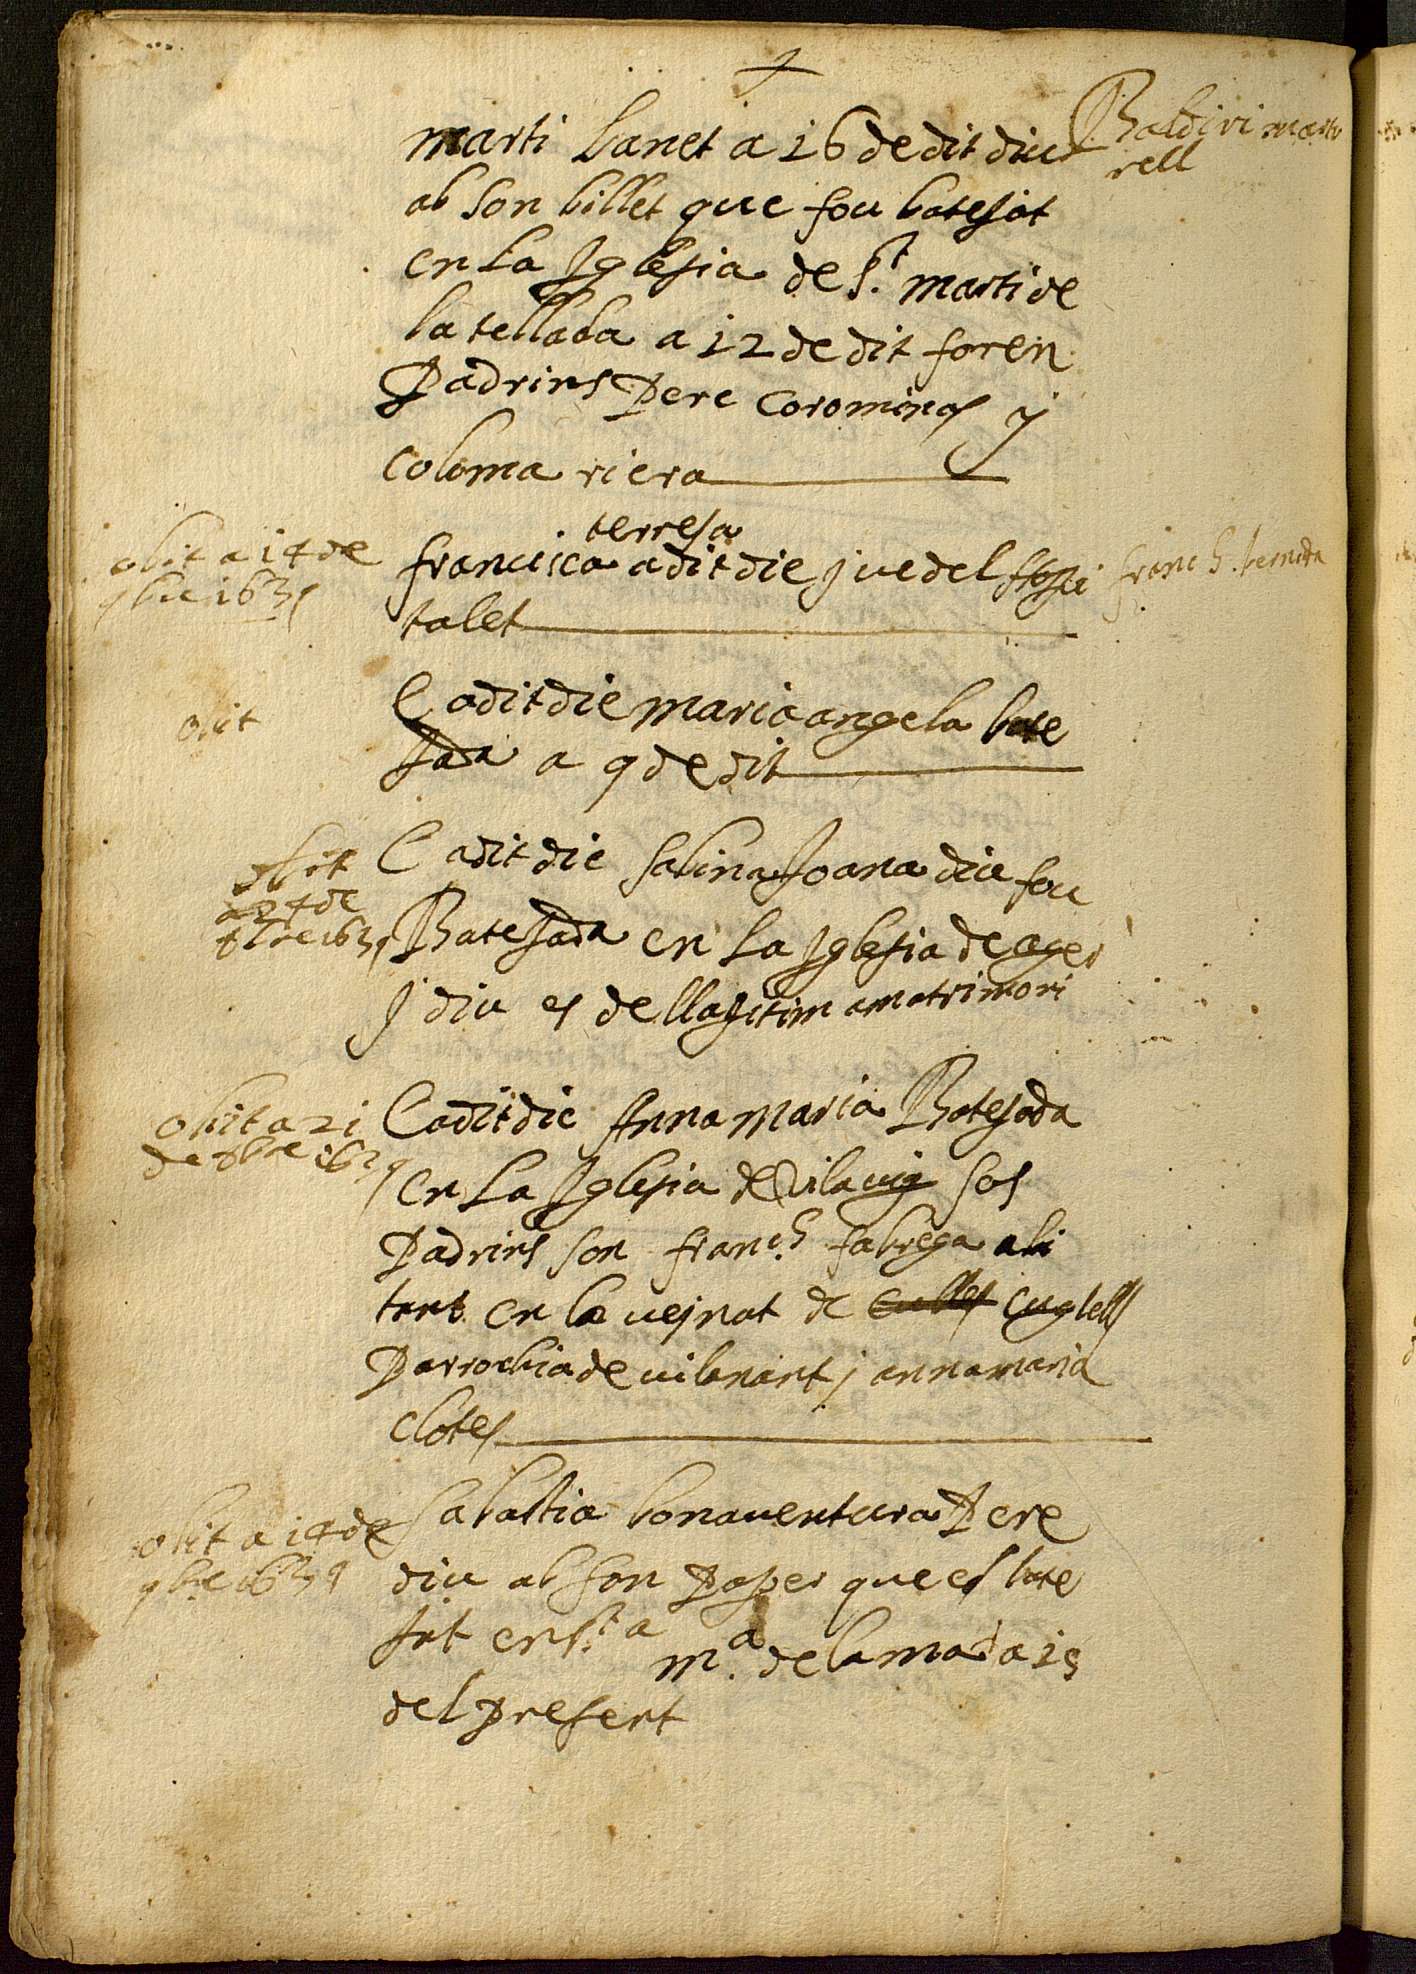 marti banet a 16 de dit diu
Baldiri marto
rell
ab son billet que fou batejat
en la Iglesia de S.t marti de
la tellada a 12 de dit foren
Padrins Pere Corominas y
Coloma riera
obit a 14 de
9bre 1639
terresa
francisca a dit die j ve del
talet
franch bernada
obit
C a dit die maria angela bate
jada a 9 de dit
obit
a 24 de
1639
C a dit die sabina Joana diu fou
Batejada en la Iglesia de ager
j diu es de llagitim a matrimoni
obit a 21
de 8bre 1639
C a dit die Anna maria Batejada
en la Iglesia de Vilauig sos
Padrins son franch fabrega abi
tant en lo vejnat de Cuglells
Parrochia de vilanant j anna maria
Clotes
obit a 14 de
9bre 1639
sabastia bonaventura Pere
diu ab son Paper que es bate
jat en St.a m.a de la mada 15
del Present